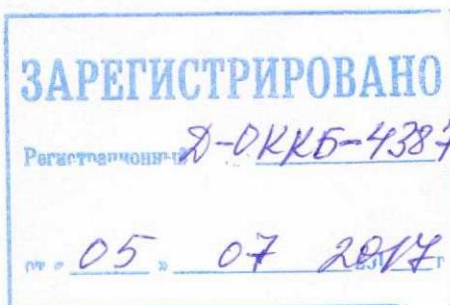 ЗАРЕГИСТРИРОВАНО
Регистрационный Д-ОККБ-4387
от « 05 » 07 2017 г